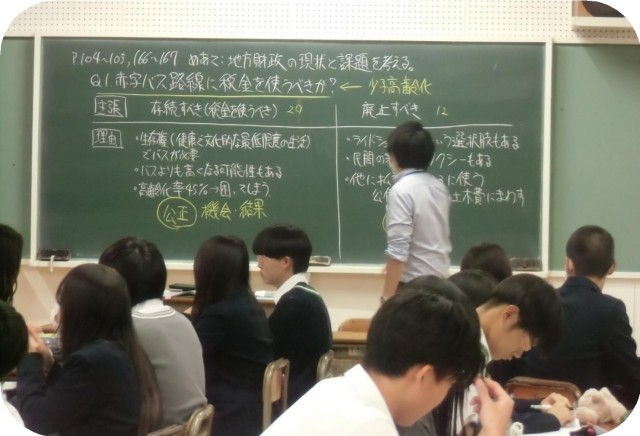 P104~105,166~167 めあて:地方財政の現状と課題を考える。
Q.1 赤字バス路線に税金を使うべきか? ← 少子高齢化
主張 存続すべき(税金を使うべき) 29 廃止すべき 12
理由 ・生存権(健康で文化的な最低限度の生活)
でバスが必要
・バスよりも高くなる可能性もある
・高齢化率45%→困ってしまう
公正 機会・結果
・ライドシ いう選択肢もある
・民間の クシーもある
・他に に使う
土木費にまわす